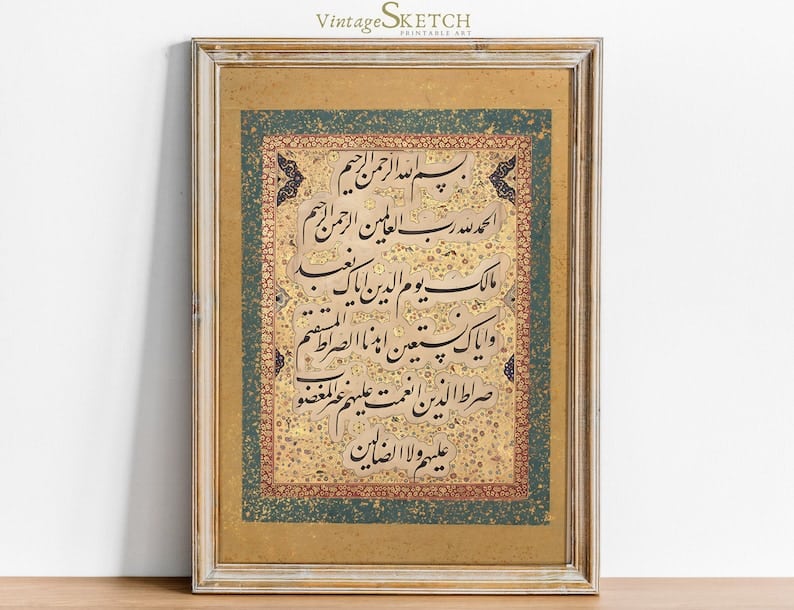 VintageSKETCH
PRINTABLE ART
بسم الله الرحمن الرحیم
الحمد لله رب العالمین الرحمن الرحیم
مالک یوم الدین ایاک نعبد
وایاک نستعین اهدنا الصراط المستقیم
صراط الذین انعمت علیهم غیر المغضوب
علیهم ولا الضالین